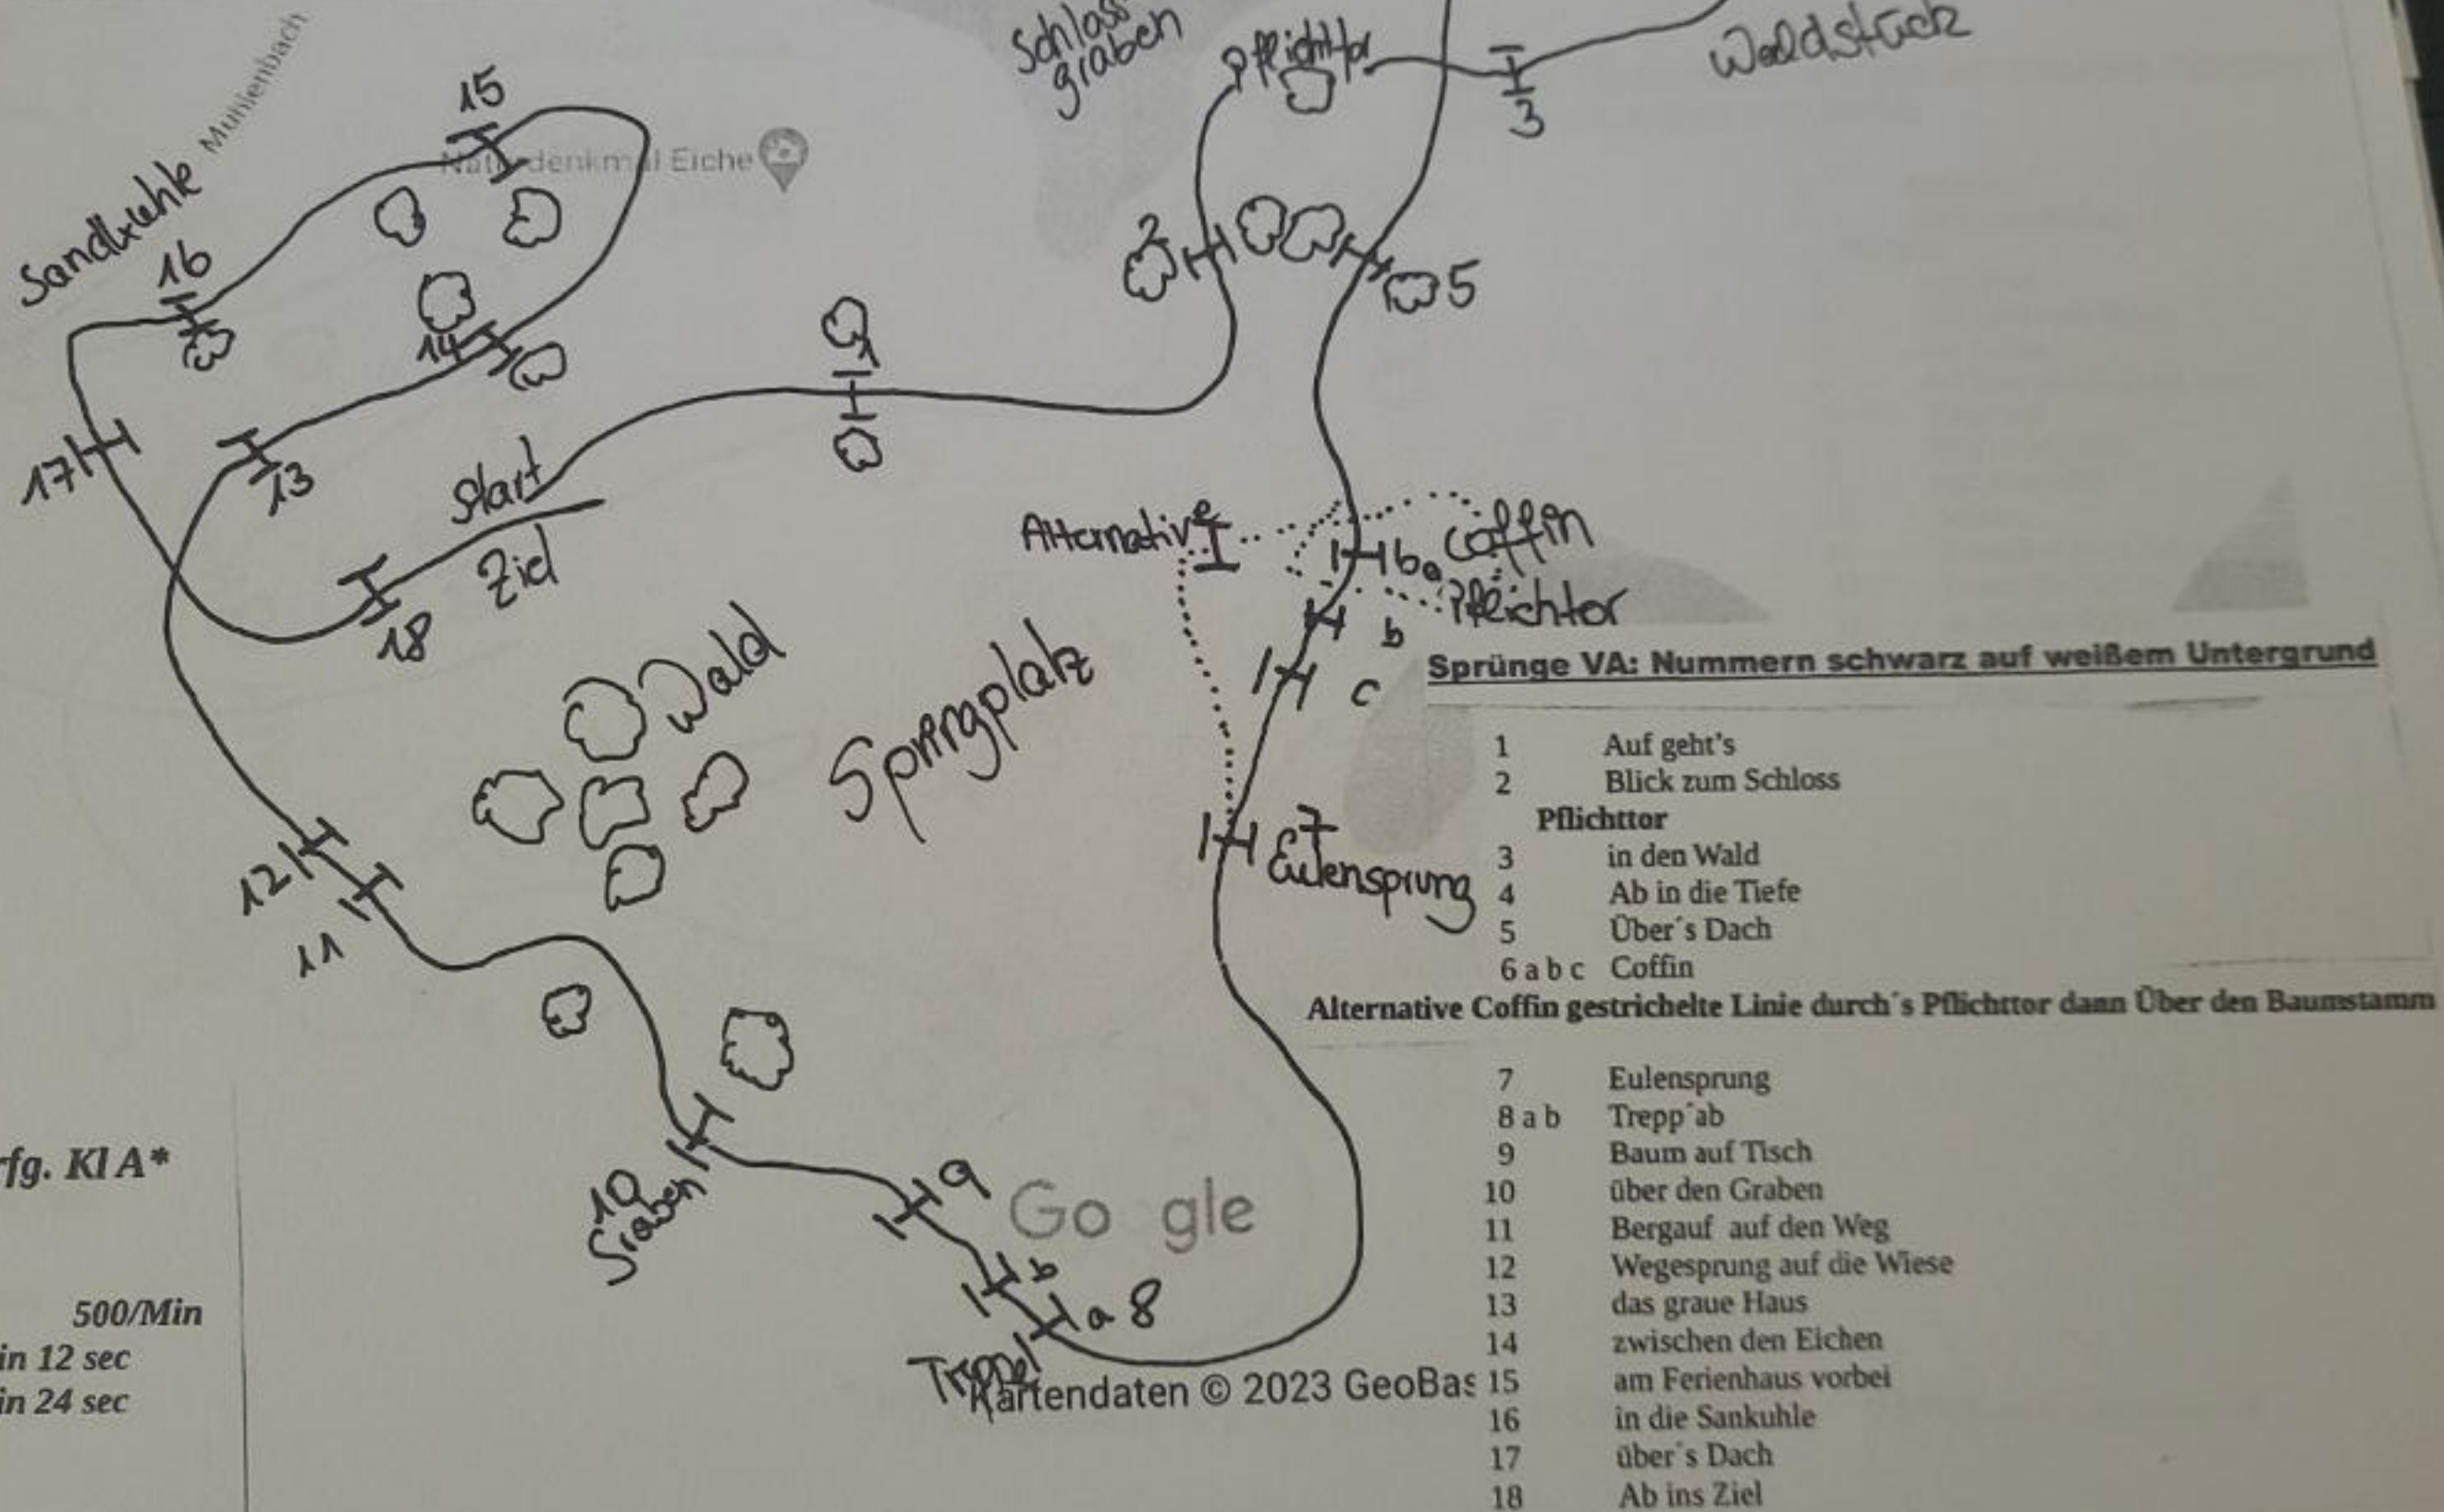 Schloss
graben
Pflichttor
Waldstück
3
Mühlenbach
15
Naturdenkmal Eiche
Sandkuhle
16
2
5
14
1
17
13
Start
Ziel
18
Alternative
6a Coffin
Pflichtor
b
c
Wald
Springplatz
7
Eulensprung
12
11
10
Graben
9
b
a 8
Treppe
Google
Kartendaten © 2023 GeoBas
rfg. Kl A*
500/Min
in 12 sec
in 24 sec
Sprünge VA: Nummern schwarz auf weißem Untergrund
1 Auf geht's
2 Blick zum Schloss
Pflichttor
3 in den Wald
4 Ab in die Tiefe
5 Über´s Dach
6 a b c Coffin
Alternative Coffin gestrichelte Linie durch´s Pflichttor dann Über den Baumstamm
7 Eulensprung
8 a b Trepp´ab
9 Baum auf Tisch
10 über den Graben
11 Bergauf auf den Weg
12 Wegesprung auf die Wiese
13 das graue Haus
14 zwischen den Eichen
15 am Ferienhaus vorbei
16 in die Sankuhle
17 über´s Dach
18 Ab ins Ziel